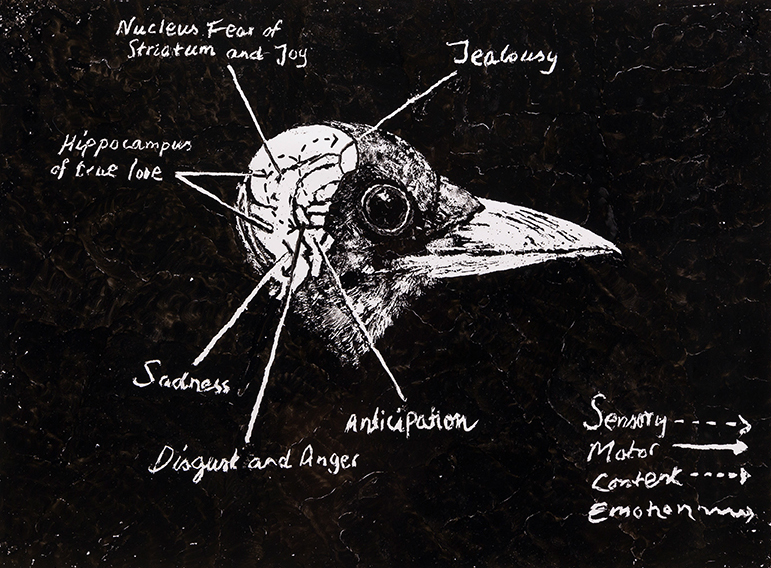 Nucleus Fear of
Striatum and Joy
Jealousy
Hippocampus
of true love
Sadness
Anticipation
Disgust and Anger
Sensory
Motor
Content
Emotion